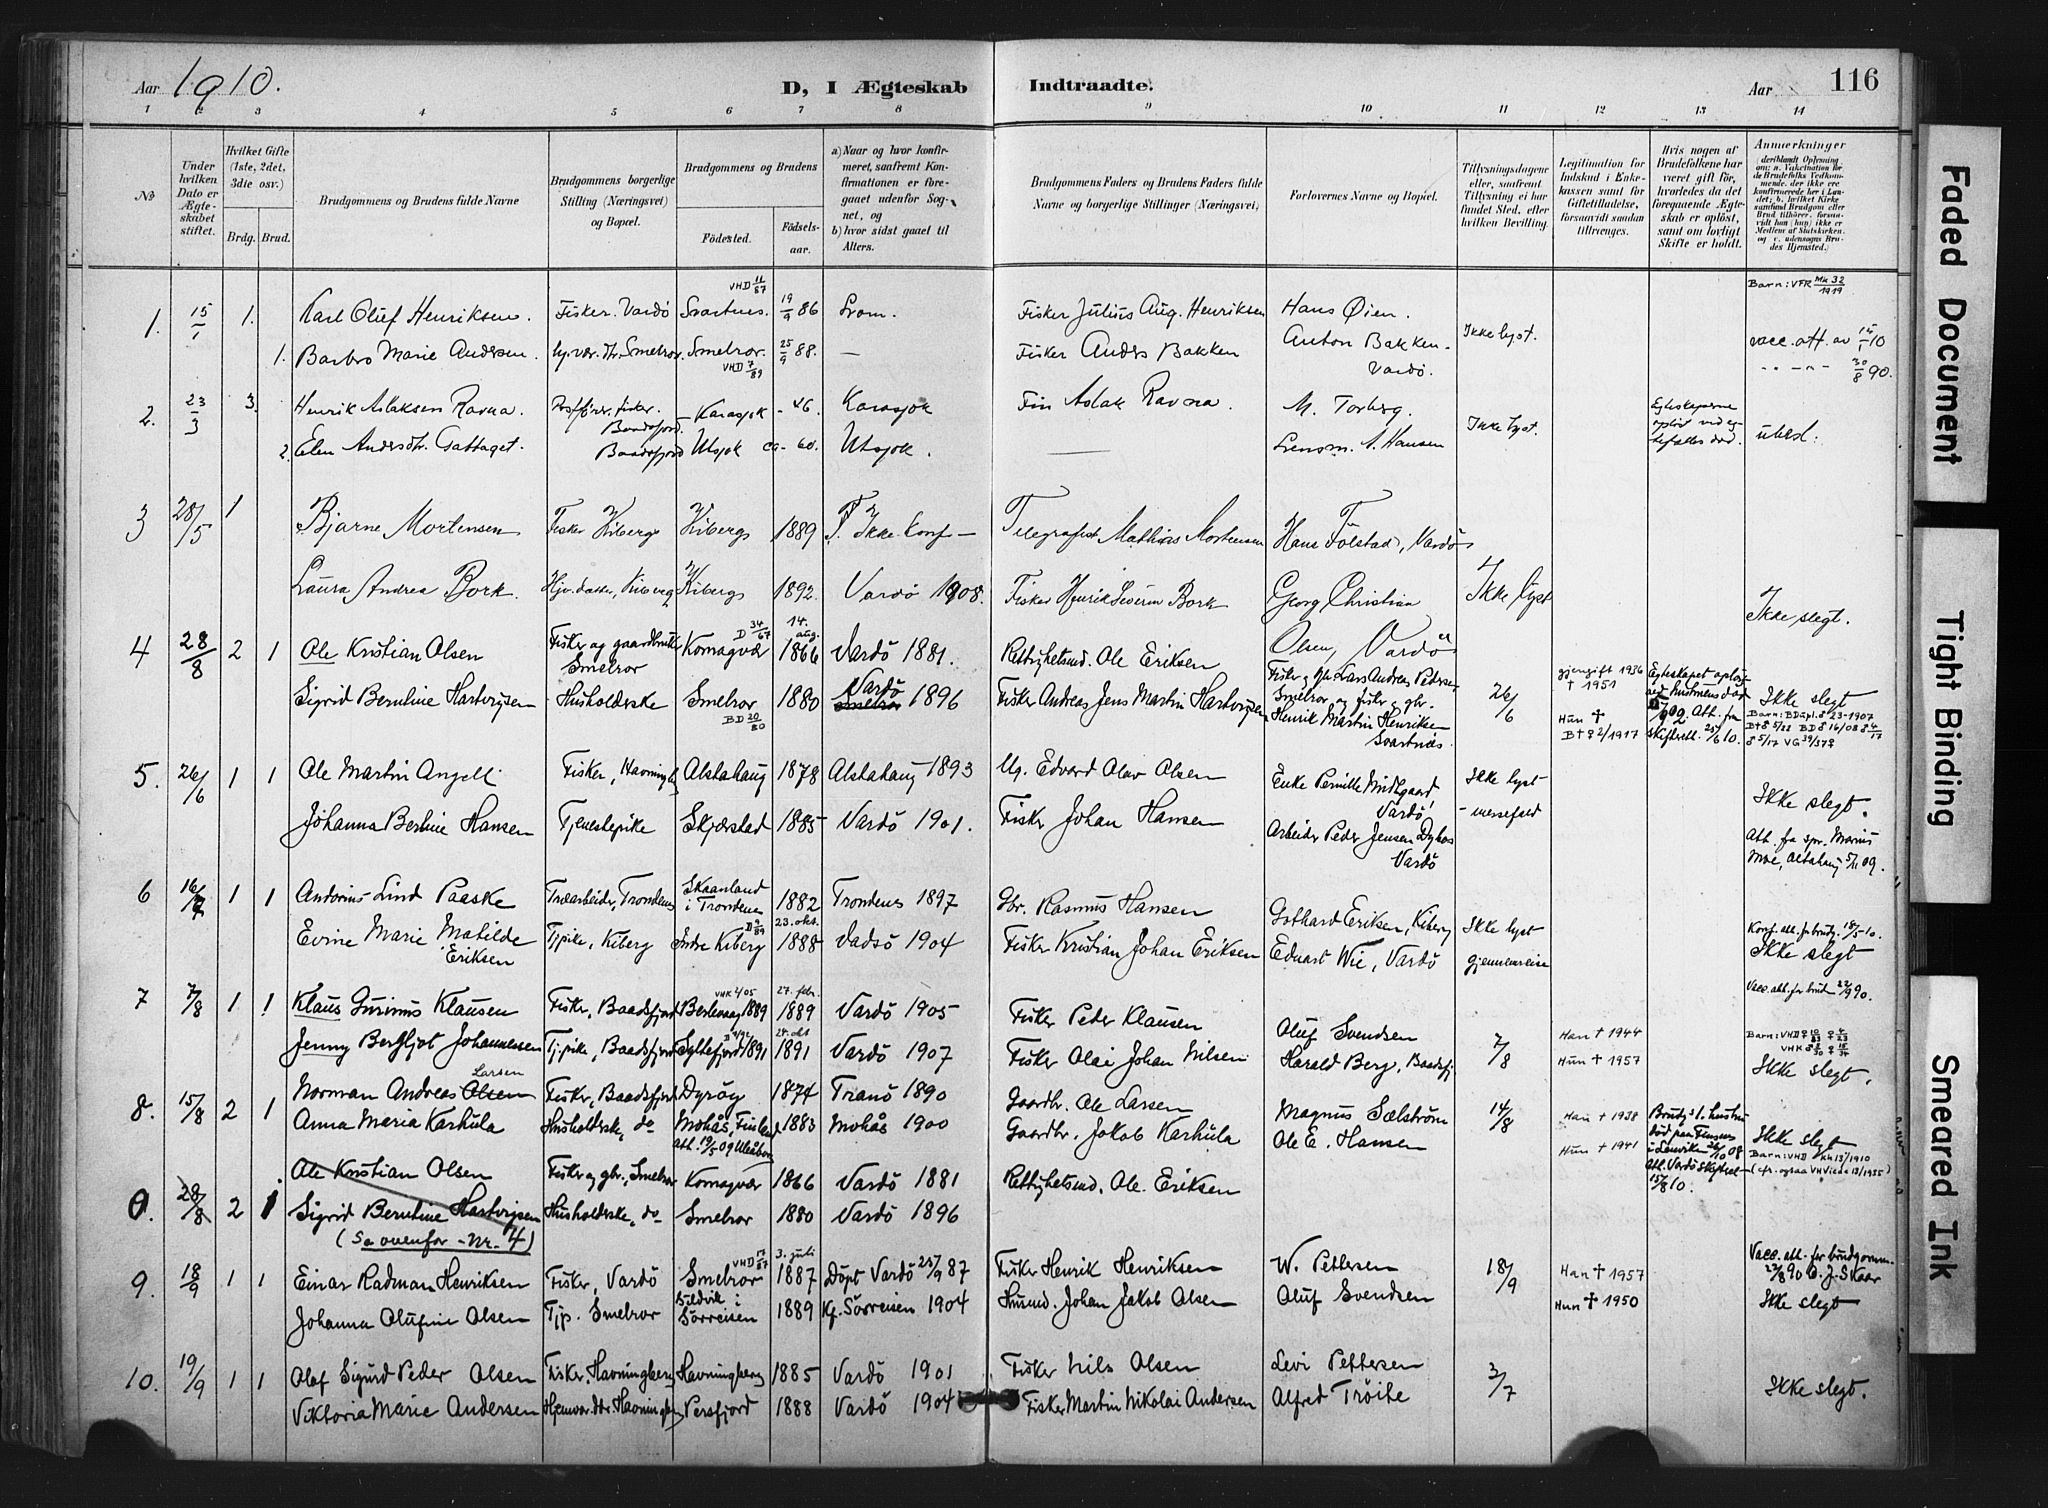 Aar 1910.
D, I Ægteskab Indtraadte.
Aar 116
1 2 3 4 5 6 7 8 9 10 11 12 13 14
No
Under hvilken Dato er Ægteskabet stiftet.
Hvilket Gifte (1ste, 2det, 3die osv.)
Brdg. Brud.
Brudgommens og Brudens fulde Navne
Brudgommens borgerlige Stilling (Næringsvei) og Bopæl.
Brudgommens og Brudens
Fødested. Fødselsaar.
a) Naar og hvor konfirmeret, saafremt Konfirmationen er foregaaet udenfor Sognet, og
b) hvor sidst gaaet til Alters.
Brudgommens Faders og Brudens Faders fulde Navne og borgerlige Stillinger (Næringsvei)
Forlovernes Navne og Bopæl.
Tillysningsdagene eller, saafremt Tillysning ei har fundet Sted, efter hvilken Bevilling.
Legitimation for Indskud i Enkekassen samt for Giftetilladelse, forsaavidt saadan tiltrænges.
Hvis nogen af Brudefolkene har været gift før, hvorledes da det foregaaende Ægteskab er opløst, samt om lovligt Skifte er holdt.
Anmærkninger
VHD 11/87 Barn: VFR Mk 32/1919
1. 15/1 1. Karl Oluf Henriksen. Fisker. Vardö Svartnes. 19/9 86 Fisker Julius Aug. Henriksen Hans Øien.
1. Barbro Marie Andersen. Smelror. Smelror. 25/9 88. — Fisker Anders Bakken Anton Bakken - Vardö. Ikke lyst. vacc. att. av 15/1 10
VHD 7/89 30/8 90.
2. 23/3 3. Henrik Aslaksen Ravna. Baadsfjord. Karasjok - 26. Karasjok Fin Aslak Ravna. M. Torberg. Ikke lyst.
2. Elen Andersdtr. Gattaget. Baadsfjord Utsjok ca. 60. Utsjok. — Lensm. A. Hansen
3 28/5 1 Bjarne Mortensen Fisker Kiberg Kiberg 1889 Ikke konf — Telegrafist Mathias Mortensen Hans Fölstad, Vardö
Laura Andrea Bork. Kiberg Kiberg 1892. Vardö 1908. Fisker Henrik Severin Bork Georg Christian Olsen, Vardö Ikke lyst Ikke slegt.
D 34/67 14. aug.
4 28/8 2 1 Ole Kristian Olsen Fisker og gaardbruker Smelror Komagvær 1866 Vardö 1881. Rettighetsmd. Ole Eriksen Fisker og gbr Lars Andreas Pedersen Smelror og fisker og gbr. Henrik Martin Henriksen Svartnæs. 26/6 gjengift 1936 † 1951
Sigrid Berntine Hartvigsen Husholderske Smelror 1880 Vardö 1896 Fisker Andreas Jens Martin Hartvigsen Hun † B†♀2/1917 Ikke slegt
BD 20/80
5. 26/6 1 1 Ole Martin Angell Fisker, Havningb. Alstahaug 1878 Alstahaug 1893 Ug. Edvard Olav Olsen Enke Pernille Vardö Ikke lyst
Johanna Berline Hansen Tjenestepike Skjærstad 1885 Vardö 1901. Fisker Johan Hansen Arbeider Peder Jensen Vardö Ikke slegt.
Att. fra spr. Marius Moe, Alstahaug 5/11 09.
6 16/7 1 1 Andorius Lind Paaske Træarbeider, Trondenes Skaanland i Trondenes 1882 Trondenes 1897 Gbr. Rasmus Hansen Gothard Eriksen, Kiberg Ikke lyst
D 9/89 23. okt.
Evine Marie Matilde Eriksen Tjpike, Kiberg Indre Kiberg 1888 Vadsö 1904 Fisker Kristian Johan Eriksen Eduart Wie, Vardö gjennemreise Konf. att. for brudg. 18/5 10. Ikke slegt
VHK 2/05 27. febr. Vacc. att. for brud 22/9 90.
7 7/8 1 1 Klaus Gurinius Klausen Fisker, Baadsfjord Berlevaag 1889 1889 Vardö 1905 Fisker Peder Klausen Oluf Svendsen 7/8 Han † 1944
Jenny Bergljot Johannesen Tjpike, Baadsfjord Syltefjord 1891 1891 Vardö 1907 Fisker Olai Johan Nilsen Harald Berg, Baadsfj. Hun † 1957 Ikke slegt.
Larsen
8. 15/8 2 1 Norman Andreas Olsen Fisker, Baadsfjord Dyröy 1874 Tranö 1890 Gaardbr. Ole Larsen Magnus Sælström 14/8 Han † 1938
Anna Maria Karhula Husholdrske, do Mohås, Finland 1883 Mohås 1900 Gaardbr. Jakob Karhula Ole E. Hansen Hun † 1941 Ikke slegt
att. 19/5 09 Uleåborg Barn: VHD
Att. Vardö skifteret 15/8 10.
9. 28/8 2 1 Ole Kristian Olsen Fisker og gbr, Smelror Komagvær 1866 Vardö 1881 Rettighetsmd. Ole Eriksen
Sigrid Berntine Hartvigsen Husholdrske, do Smelror 1880 Vardö 1896
(Se ovenfor - Nr. 4)
VHD 17/87 3. juli
9. 18/9 1 1 Einar Radman Henriksen Fisker, Vardö Smelror 1887 Döpt Vardö 25/9 87 Fisker Henrik Henriksen W. Pettersen 18/9 Han † 1957 Vacc. att. for brudgomm. 23/8 90 O. J. Skaar
Johanna Olufine Olsen Tjp. Smelror Gildvik i Sörreisen 1889 Kf. Sörreisen 1904 Husmd. Johan Jakob Olsen Oluf Svendsen Hun † 1950 Ikke slegt
10. 19/9 1 1 Olaf Sigurd Peder Olsen Fisker, Havningberg Havningberg 1885 Vardö 1901 Fisker Nils Olsen Levi Pettersen 3/7
Viktoria Marie Andersen Hjemvær. dtr. Havningbg. Persfjord 1888 Vardö 1904 Fisker Martin Nikolai Andersen Alfred Tröite Ikke slegt.
Faded Document
Tight Binding
Smeared Ink